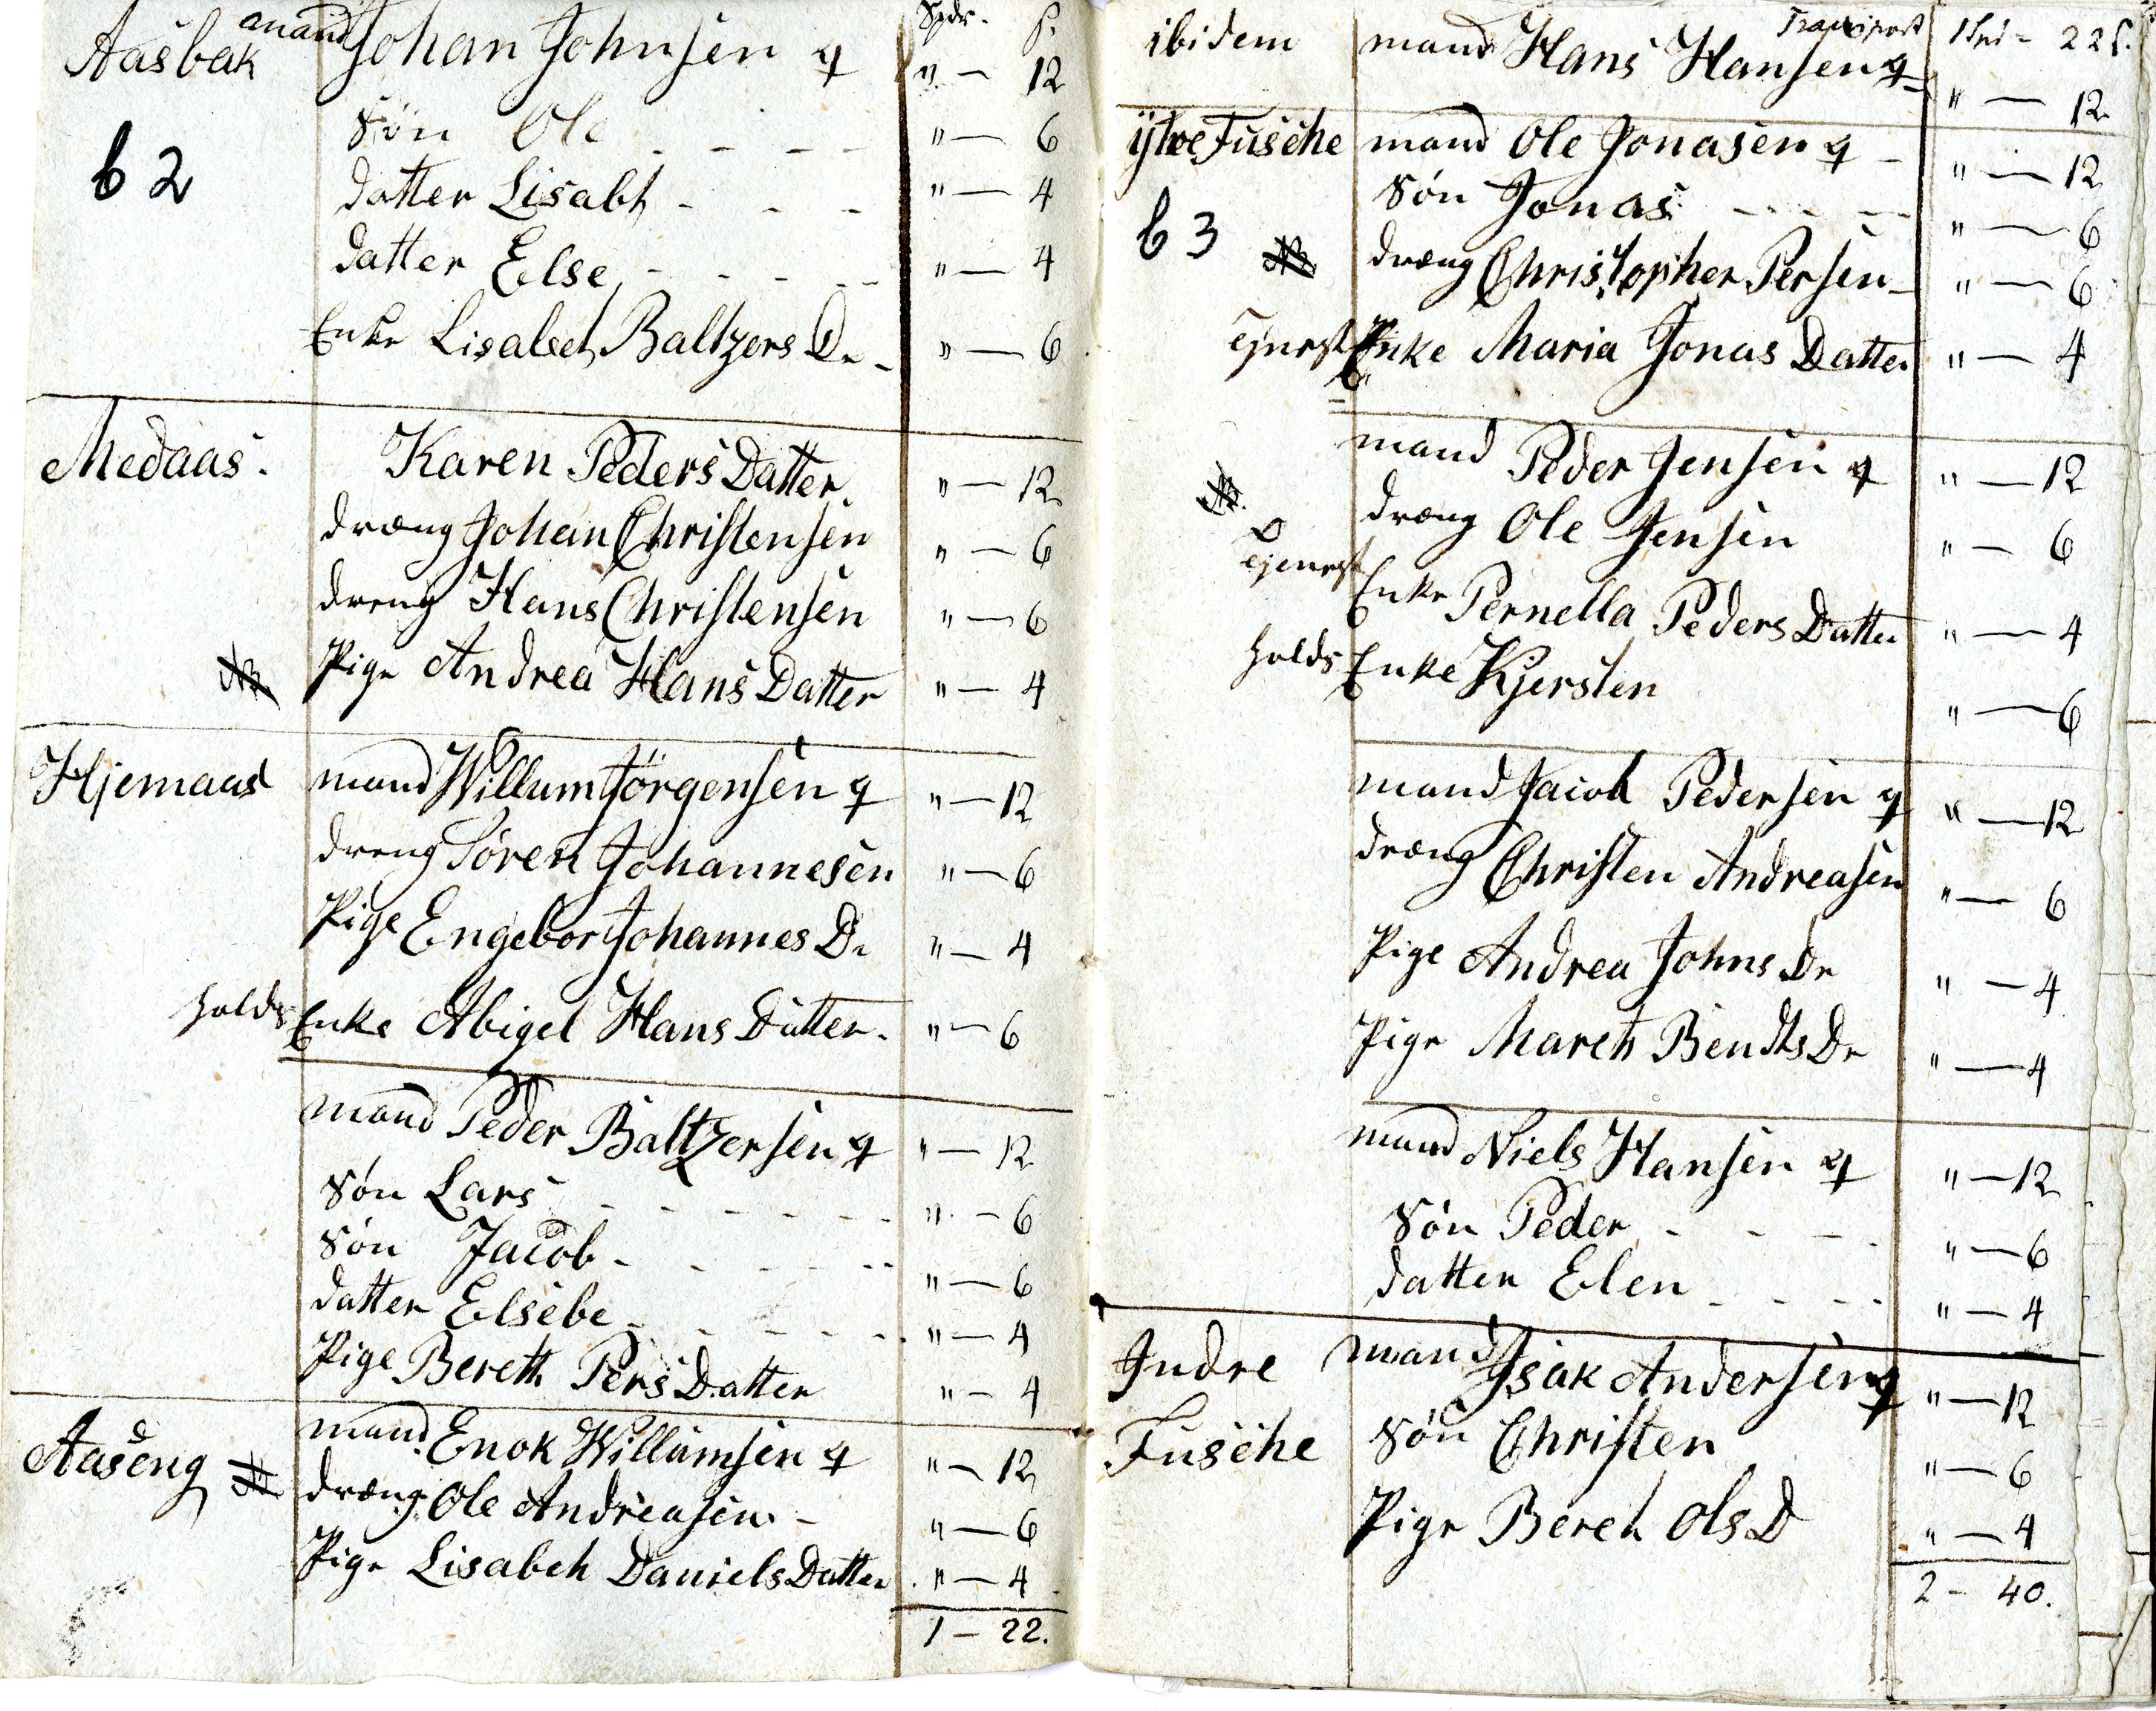 Spdr. ß.
Aasbak mand Johan Johnsen q " — 12
62
Søn Ole - - - - " — 6
datter Lisabt - - - " — 4
datter Else - - - - " — 4
Enke Lisabeth Baltzers Dr - " — 6
Medaas. Karen Peders Datter. " — 12
dræng Johan Christensen " — 6
dreng Hans Christensen " — 6
Pige Andrea Hans Datter " — 4
Hjemaas mand Willum Jörgensen q " — 12
dreng Sören Johannesen " — 6
Pige Engebor Johannes Dr " — 4
holds Enke Abigel Hans Datter. " — 6
mand Peder Baltzersen q " — 12
Søn Lars - - - - - - " — 6
Søn Jacob - - - - - " — 6
datter Elsebe - - - - - " — 4
Pige Bereth Pers Datter " — 4
Aaseng mand Enok Willumsen q " — 12
dræng Ole Andreasen - " — 6
Pige Lisabeh Daniels Datter " — 4
1 — 22.
Transport 1 Spd - 22 ß.
ibidem mand Hans Hansen q - " — 12
ÿtre Fusche mand Ole Jonasen q - " — 12
63
Søn Jonas - - - - " — 6
dræng Christopher Persen - " — 6
Enke Maria Jonas Datter " — 4
mand Peder Jensen q " — 12
dræng Ole Jensen " — 6
Enke Pernella Peders Datter " — 4
holds Enke Kjersten " — 6
mand Jacob Pedersen q " — 12
dræng Christen Andreasen " — 6
Pige Andrea Johns Dr " — 4
Pige Mareth Bendts Dr " — 4
mand Niels Hansen q " — 12
Søn Peder - - - - " — 6
datter Elen - - - - " — 4
Indre mand Isak Andersen q " — 12
Fusche Søn Christen " — 6
Pige Bereh Ols D " — 4
2 — 40.